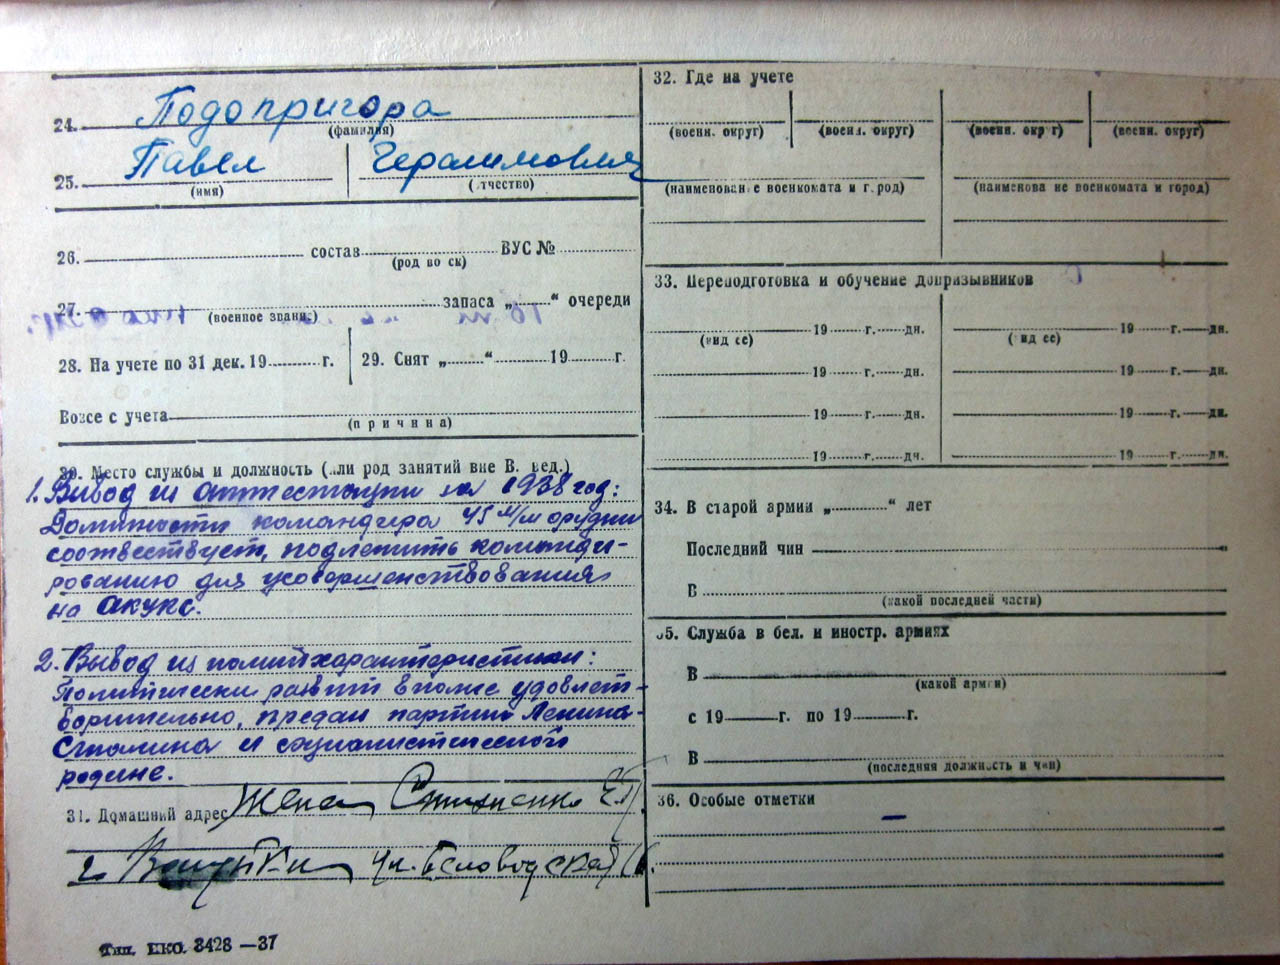 24. Подопригора
(фамилия)
25. Павел Герасимович
(имя) (отчество)
26. состав ВУС №
(род во ск)
27. запаса „ “ очереди
(военное звание)
28. На учете по 31 дек. 19 г. 29. Снят „ “ 19 г.
Вовсе с учета
(причина)
30. Место службы и должность (или род занятий вне В. вед.)
1. Вывод из аттестации за 1938 год:
Должности командира 45 м/м орудии
соотвествует, подлежить команди-
рованию для усовершенствования
на АКУКС.
2. Вывод из политхарактеристики:
Политически развит вполне удовлет-
ворительно, предан партии Ленина-
Сталина и социалистической
родине.
31. Домашний адрес Жена Е.П.
г. ул. Беловодская
Тип. НКО. 3428—37
32. Где на учете
(военн. округ) (военн. округ) (военн. окр г) (военн. округ)
(наименован е военкомата и г.род) (наименова не военкомата и город)
33. Переподготовка и обучение допризывников
19 г. дн. 19 г. дн.
(вид ее) (вид ее)
19 г. дн. 19 г. дн.
19 г. дн. 19 г. дн.
19 г. дн. 19 г. дн.
34. В старой армии „ “ лет
Последний чин
В
(какой последней части)
35. Служба в бел. и иностр. армиях
В
(какой армии)
с 19 г. по 19 г.
В
(последняя должность и чин)
36. Особые отметки
—